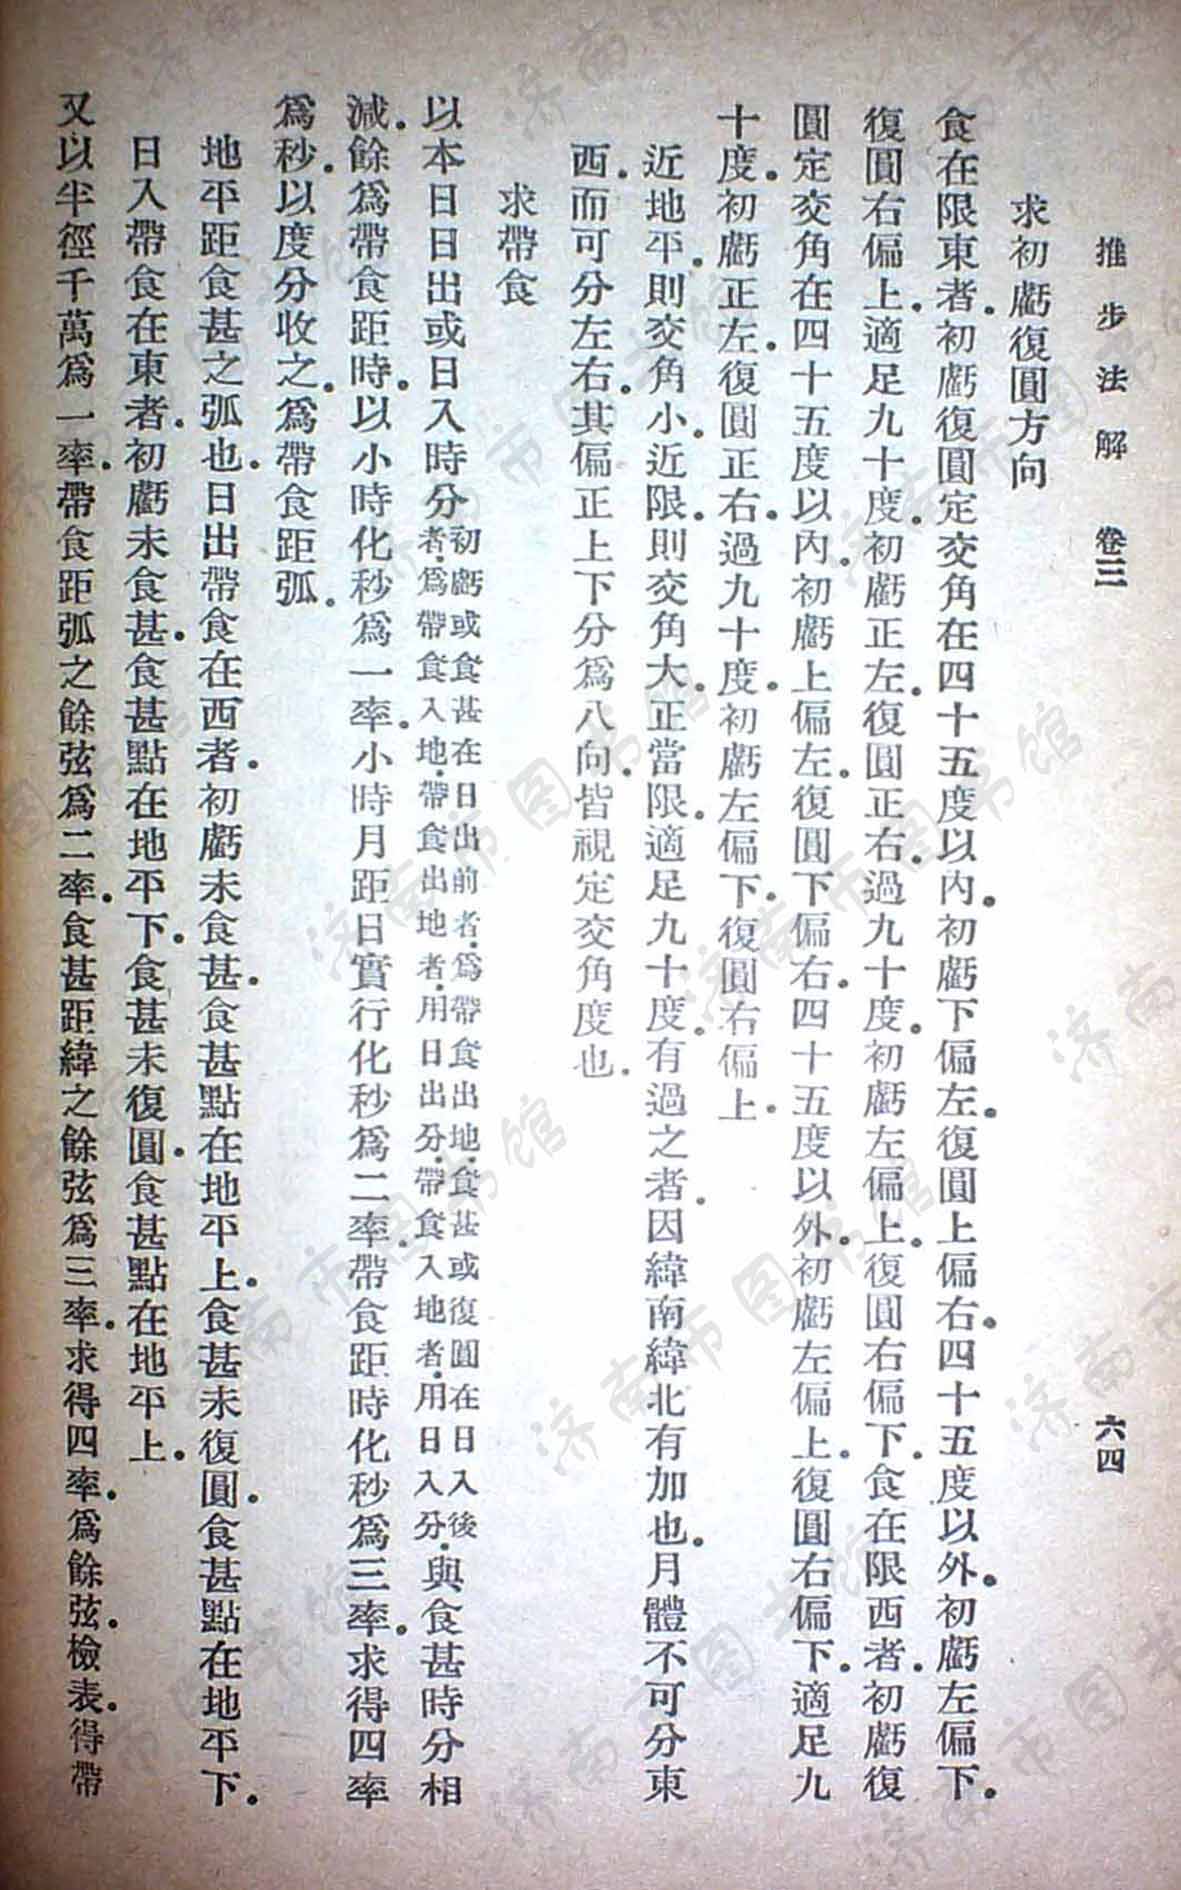 推步法解　卷三　六四
求初虧復圓方向
食在限東者。初虧復圓定交角在四十五度以內。初虧下偏左。復圓上偏右。四十五度以外。初虧左偏下。
復圓右偏上。適足九十度。初虧正左。復圓正右。過九十度。初虧左偏上。復圓右偏下。食在限西者。初虧復
圓定交角在四十五度以內。初虧上偏左。復圓下偏右。四十五度以外。初虧左偏上。復圓右偏下。適足九
十度。初虧正左。復圓正右。過九十度。初虧左偏下。復圓右偏上。
近地平。則交角小。近限。則交角大。正當限。適足九十度。有過之者。因緯南緯北有加也。月體不可分東
西。而可分左右。其偏正上下分爲八向。皆視定交角度也。
求帶食
以本日日出或日入時分初虧或食甚在日出前者。爲帶食出地。食甚或復圓在日入後者。爲帶食入地。帶食出地者。用日出分。帶食入地者。用日入分。與食甚時分相
減。餘爲帶食距時。以小時化秒爲一率。小時月距日實行化秒爲二率。帶食距時化秒爲三率。求得四率
爲秒。以度分收之。爲帶食距弧。
地平距食甚之弧也。日出帶食在西者。初虧未食甚。食甚點在地平上。食甚未復圓。食甚點在地平下。
日入帶食在東者。初虧未食甚。食甚點在地平下。食甚未復圓。食甚點在地平上。
又以半徑千萬爲一率。帶食距弧之餘弦爲二率。食甚距緯之餘弦爲三率。求得四率。爲餘弦。檢表。得帶
济南市图书馆